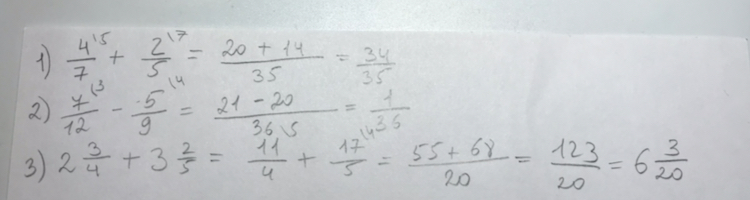 1) 4\5/7 + 2\7/5 = 20 + 14/35 = 34/35
2) 7\3/12 - 5\4/9 = 21 - 20/36 = 1/36
3) 2 3/4 + 3 2/5 = 11\5/4 + 17\4/5 = 55 + 68/20 = 123/20 = 6 3/20